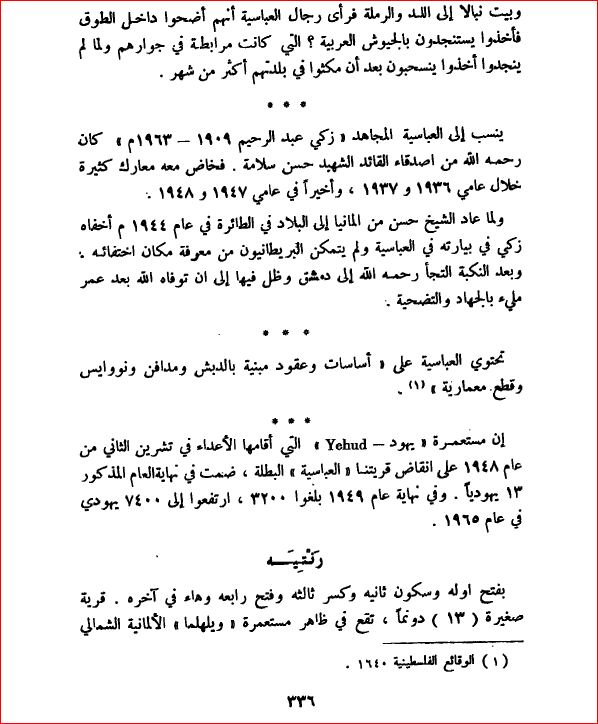 وبيت نبالا إلى اللد والرملة فرأى رجال العباسية أنهم أضحوا داخل الطوق
فأخذوا يستنجدون بالجيوش العربية ؟ التي كانت مرابطة في جوارهم ولما لم
ينجدوا أخذوا ينسحبون بعد أن مكثوا في بلدتهم أكثر من شهر .
* * *
ينسب إلى العباسية المجاهد « زكي عبد الرحيم ١٩٠٩ – ١٩٦٣م » كان
رحمه الله من اصدقاء القائد الشهيد حسن سلامة . فخاض معه معارك كثيرة
خلال عامي ١٩٣٦ و ١٩٣٧ ، وأخيراً في عامي ١٩٤٧ و ١٩٤٨ .
ولما عاد الشيخ حسن من المانيا إلى البلاد في الطائرة في عام ١٩٤٤ م أخفاه
زكي في بيارته في العباسية ولم يتمكن البريطانيون من معرفة مكان اختفائه .
وبعد النكبة التجأ رحمه الله إلى دمشق وظل فيها إلى ان توفاه الله بعد عمر
مليء بالجهاد والتضحية .
* * *
تحتوي العباسية على « أساسات وعقود مبنية بالدبش ومدافن ونووايس
وقطع معمارية » (١) .
* * *
إن مستعمرة « يهود – Yehud » التي أقامها الأعداء في تشرين الثاني من
عام ١٩٤٨ على انقاض قريتنا « العباسية » البطلة ، ضمت في نهايةالعام المذكور
١٣ يهودياً . وفي نهاية عام ١٩٤٩ بلغوا ٣٢٠٠ ، ارتفعوا إلى ٧٤٠٠ يهودي
في عام ١٩٦٥ .
رَنْتِيَـه
بفتح اوله وسكون ثانيه وكسر ثالثه وفتح رابعه وهاء في آخره . قرية
صغيرة ( ١٣ ) دونماً ، تقع في ظاهر مستعمرة « ويلهلما » الألمانية الشمالي
( ١ ) الوقائع الفلسطينية ١٦٤٠ .
٣٣٦